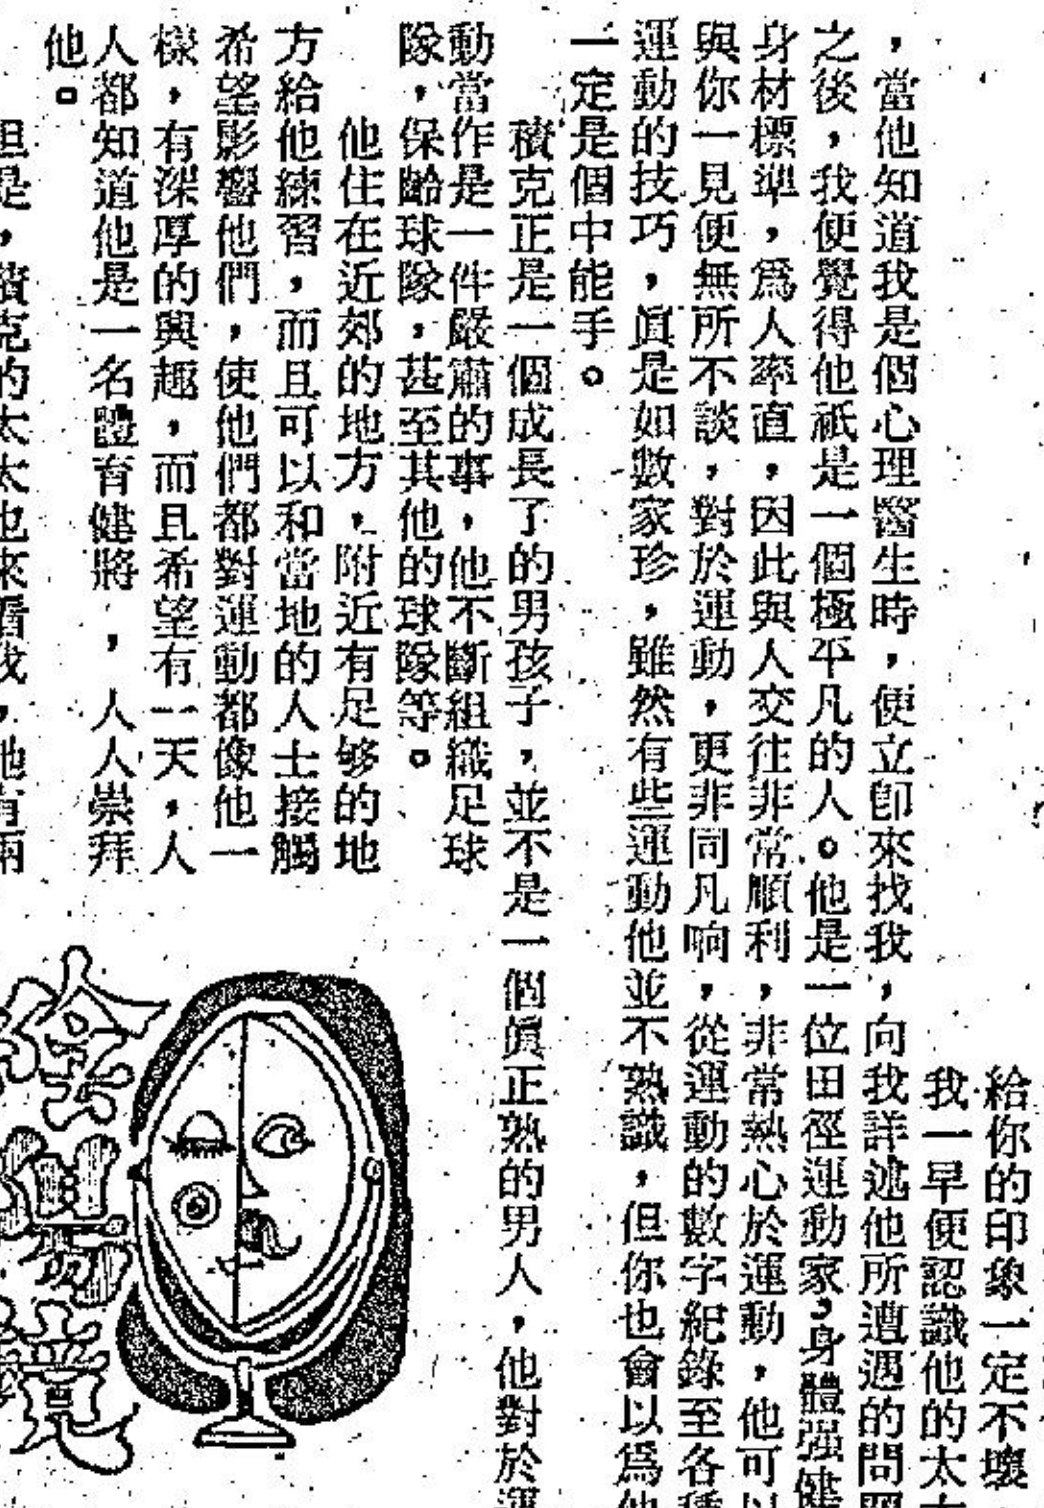 給你的印象一定不壞
我一早便認識他的太
，當他知道我是個心理醫生時，便立即來找我，向我詳述他所遭遇的問
之後，我便覺得他祇是一個極平凡的人。他是一位田徑運動家，身體强健
身材標準，爲人率直，因此與人交往非常順利，非常熱心於運動，他可以
與你一見便無所不談，對於運動，更非同凡响，從運動的數字紀錄至各種
運動的技巧，眞是如數家珍，雖然有些運動他並不熟識，但你也會以爲他
一定是個中能手。
積克正是一個成長了的男孩子，並不是一個眞正熟的男人，他對於運
動當作是一件嚴肅的事，他不斷組織足球
隊，保齡球隊，甚至其他的球隊等。
他住在近郊的地方，附近有足够的地
方給他練習，而且可以和當地的人士接觸
希望影響他們，使他們都對運動都像他一
樣，有深厚的興趣，而且希望有一天，人
人都知道他是一名體育健將，人人崇拜
他。
但是，積克的太太也來看我，她有兩